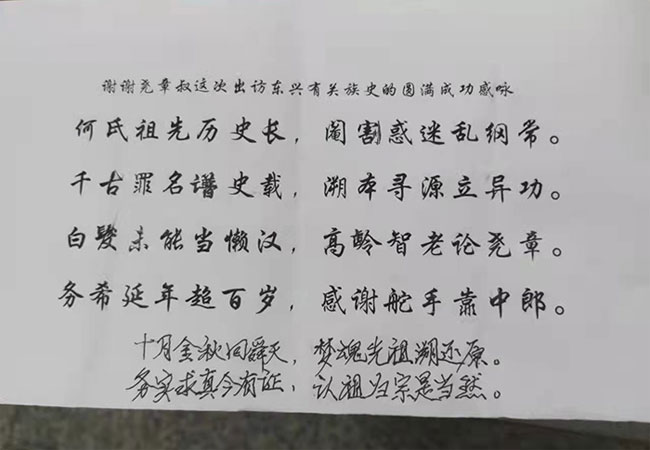 谢谢尧章叔这次出访东兴有关族史的圆满成功感咏
何氏祖先历史长，阇割惑迷乱纲常。
千古罪名谱史载，溯本寻源立异功。
白髮未能当懒汉，高龄智老论尧章。
务希延年超百岁，感谢舵手靠中郎。
十月金秋回舜天，梦魂先祖溯还原。
务实求真今有证，认祖归宗是当然。